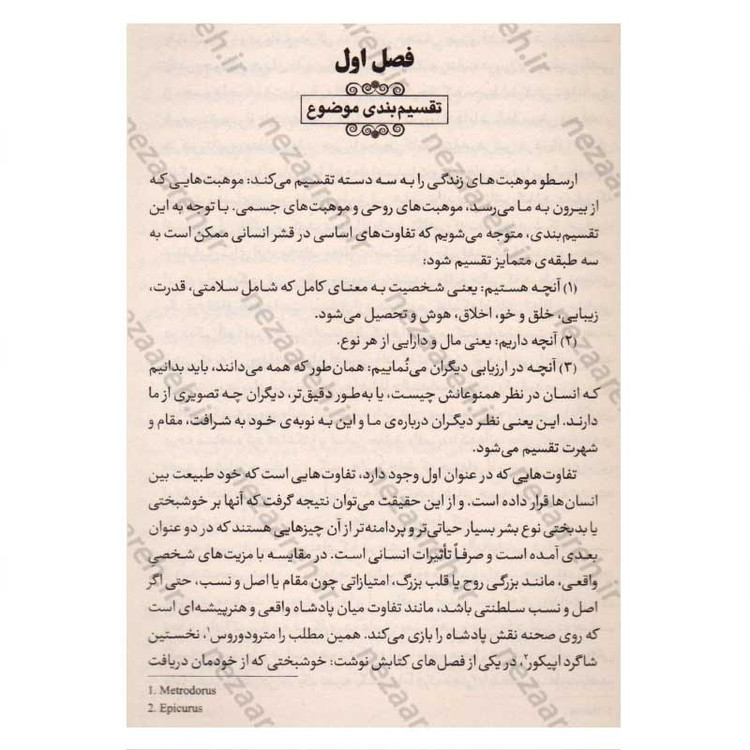 فصل اول
تقسیم‌بندی موضوع
ارسطو موهبت‌های زندگی را به سه دسته تقسیم می‌کند: موهبت‌هایی که
از بیرون به ما می‌رسد، موهبت‌های روحی و موهبت‌های جسمی. با توجه به این
تقسیم‌بندی، متوجه می‌شویم که تفاوت‌های اساسی در قشر انسانی ممکن است به
سه طبقه‌ی متمایز تقسیم شود:
(۱) آنچه هستیم: یعنی شخصیت به معنای کامل که شامل سلامتی، قدرت،
زیبایی، خلق و خو، اخلاق، هوش و تحصیل می‌شود.
(۲) آنچه داریم: یعنی مال و دارایی از هر نوع.
(۳) آنچه در ارزیابی دیگران می‌نُماییم: همان‌طور که همه می‌دانند، باید بدانیم
که انسان در نظر همنوعانش چیست، یا به‌طور دقیق‌تر، دیگران چه تصویری از ما
دارند. این یعنی نظر دیگران درباره‌ی ما و این به نوبه‌ی خود به شرافت، مقام و
شهرت تقسیم می‌شود.
تفاوت‌هایی که در عنوان اول وجود دارد، تفاوت‌هایی است که خود طبیعت بین
انسان‌ها قرار داده است. و از این حقیقت می‌توان نتیجه گرفت که آنها بر خوشبختی
یا بدبختی نوع بشر بسیار حیاتی‌تر و پردامنه‌تر از آن چیزهایی هستند که در دو عنوان
بعدی آمده است و صرفاً تأثیرات انسانی است. در مقایسه با مزیت‌های شخصی
واقعی، مانند بزرگی روح یا قلب بزرگ، امتیازاتی چون مقام یا اصل و نسب، حتی اگر
اصل و نسب سلطنتی باشد، مانند تفاوت میان پادشاه واقعی و هنرپیشه‌ای است
که روی صحنه نقش پادشاه را بازی می‌کند. همین مطلب را مترودوروس۱، نخستین
شاگرد اپیکور۲، در یکی از فصل‌های کتابش نوشت: خوشبختی که از خودمان دریافت
1. Metrodorus
2. Epicurus
nezaareh.ir